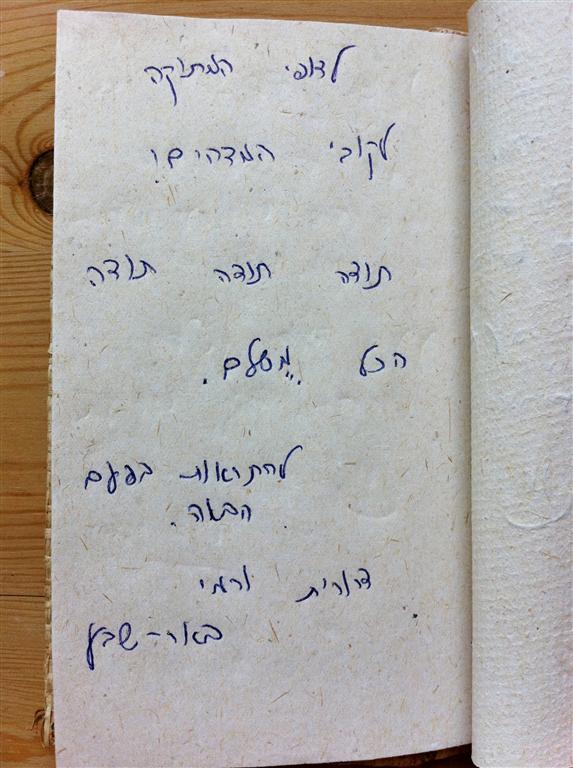 לצופי המתוקה
לקובי המדהים!
תודה תודה תודה
הכל מֻשלם.
להתראות בפעם
הבאה.
דרורית ורמי
באר-שבע